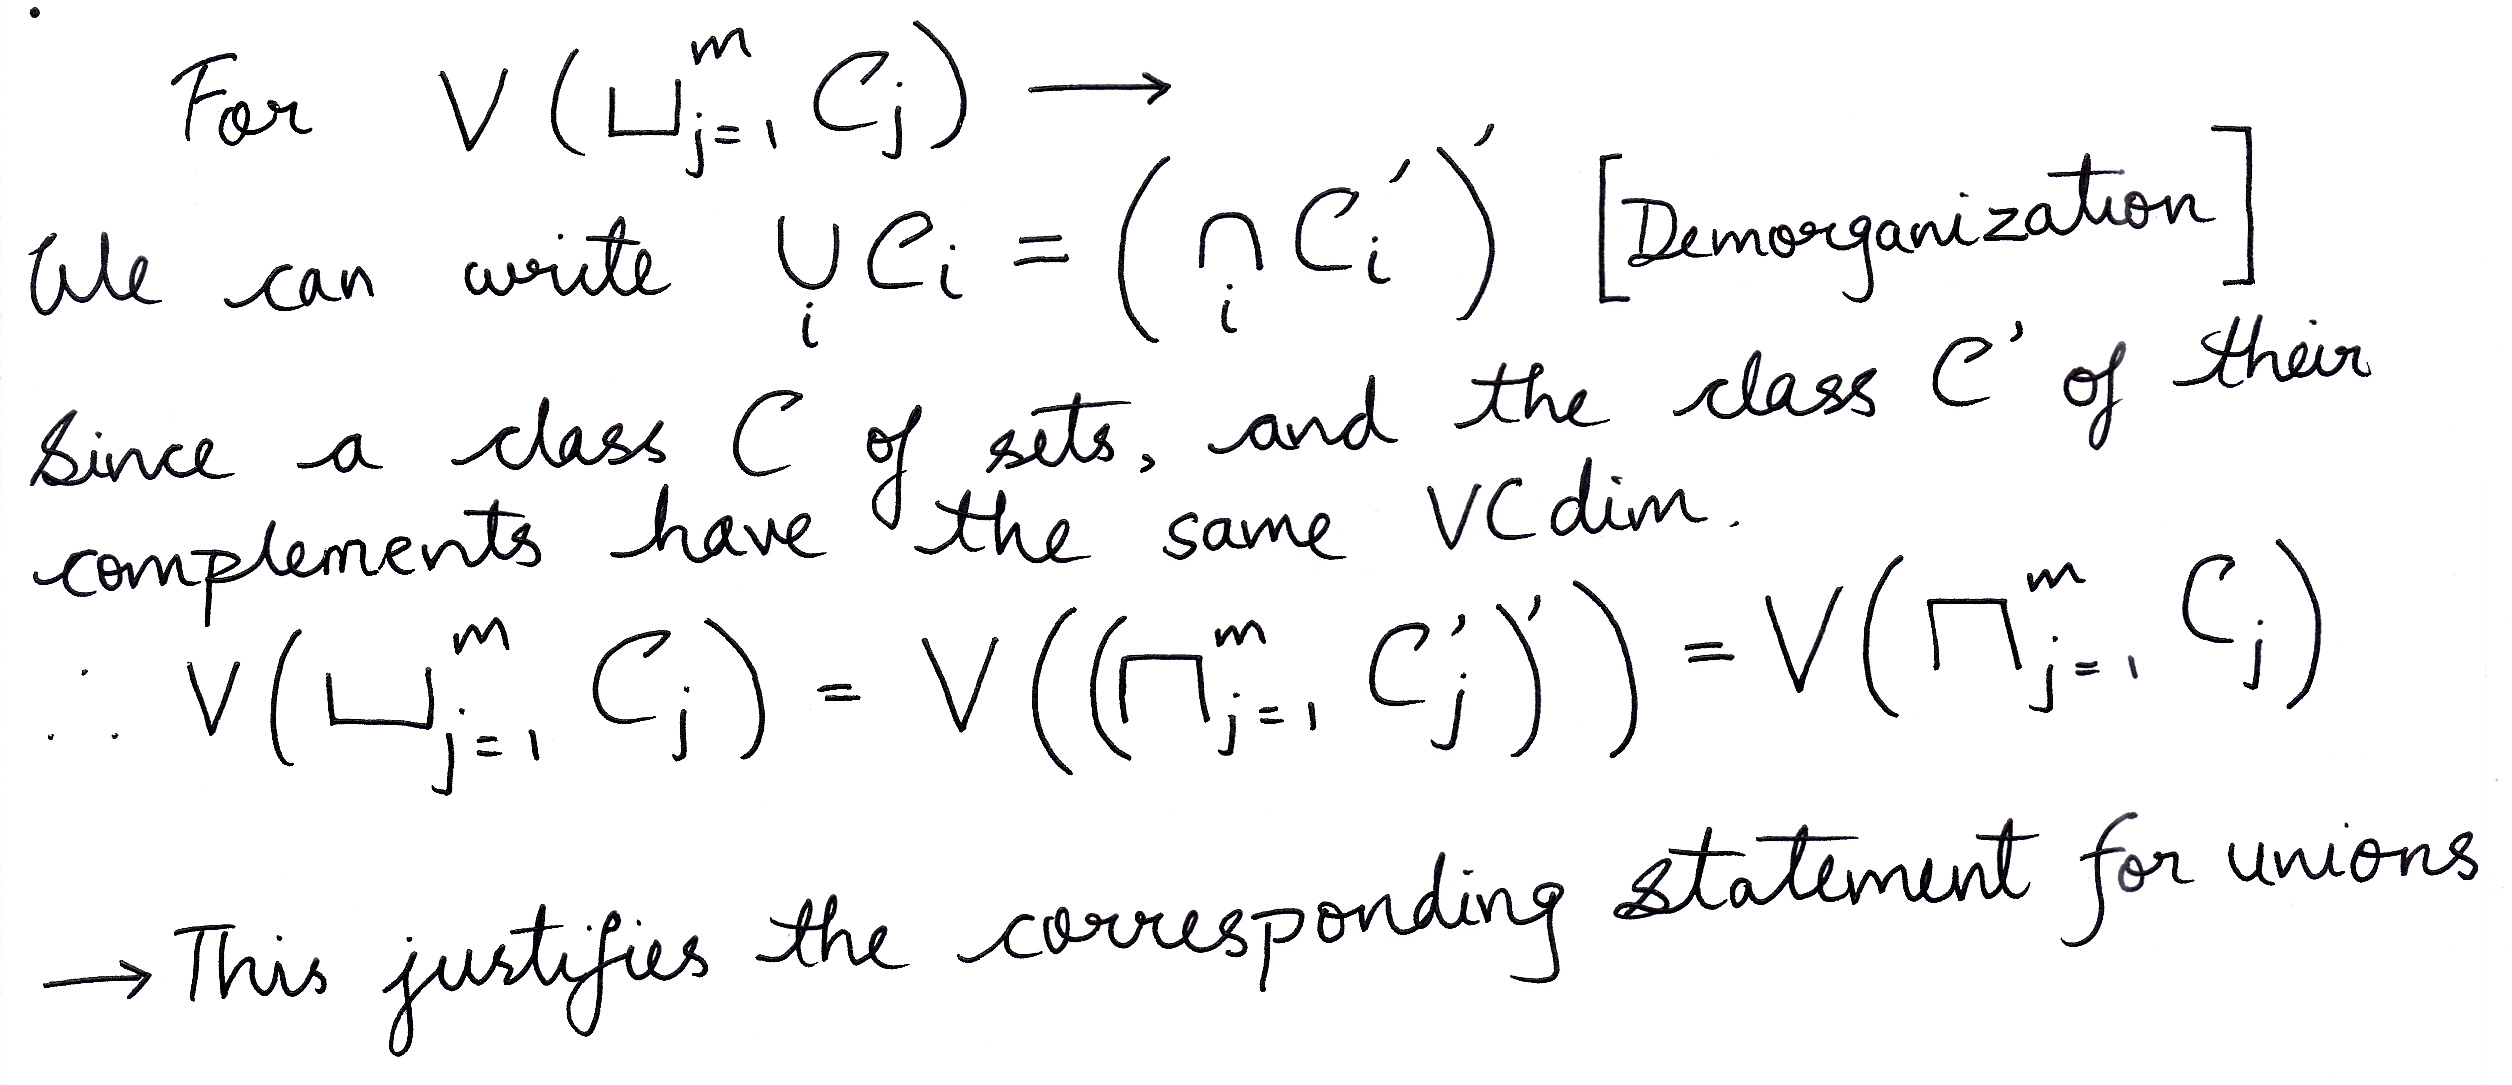 For V(⊔ᵐⱼ₌₁ Cⱼ) ⟶
We can write ∪ᵢ Cᵢ = (∩ᵢ Cᵢ′)′ [Demorganization]
Since a class C of sets, and the class C′ of their
complements have the same VCdim.
∴ V(⊔ᵐⱼ₌₁ Cⱼ) = V((⊓ᵐⱼ₌₁ Cⱼ′)′) = V(⊓ᵐⱼ₌₁ Cⱼ)
→ This justifies the corresponding statement for unions